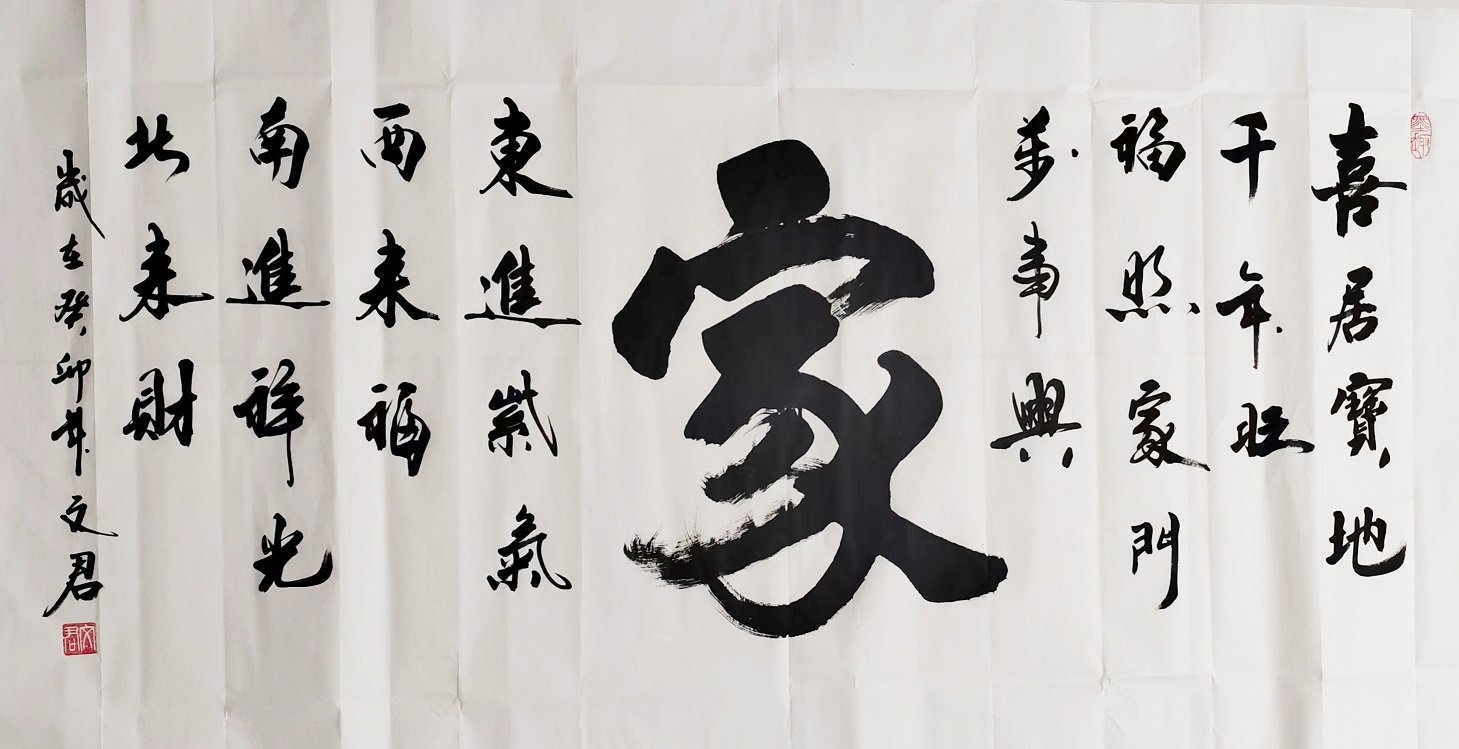 喜居寶地
千年旺
福照家門
萬事興
家
東進紫氣
西来福
南進祥光
北来財
歲在癸卯年文君
文君